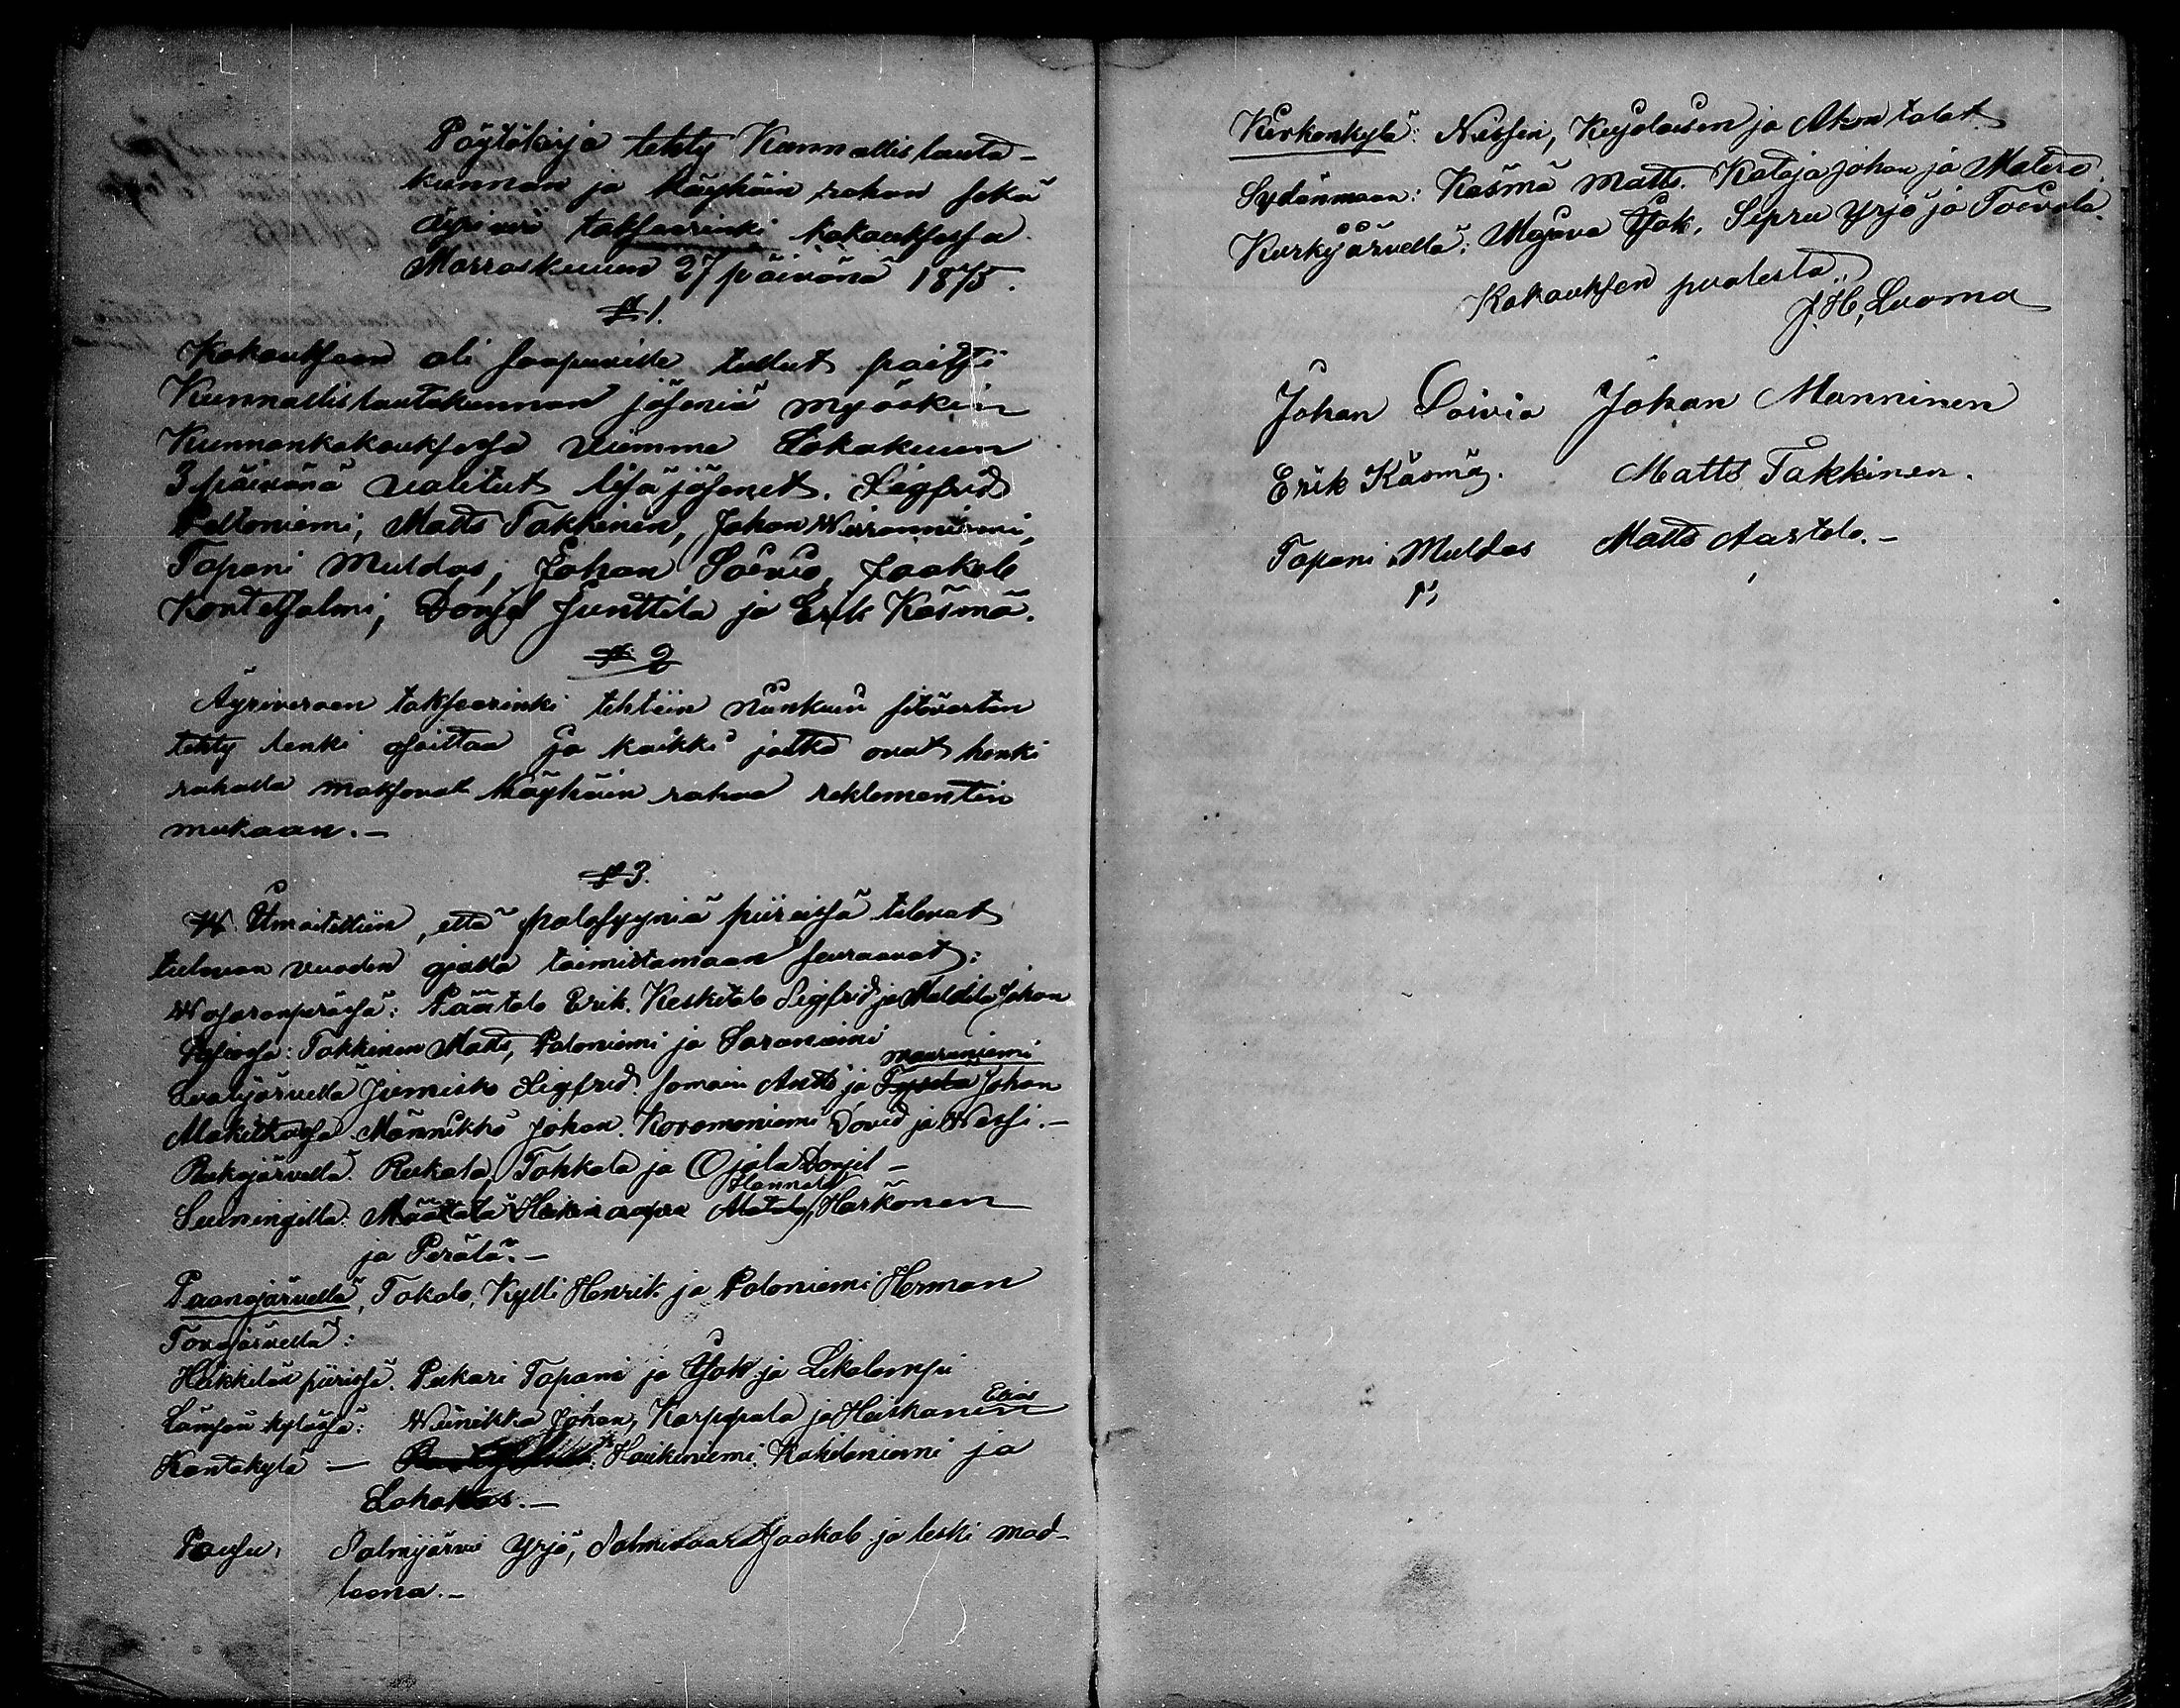 Pöytäkirja tehty Kunnallis lauta-
kunnan ja käyhäin rahan sekä
äyriveri taksearinki kokouksessa
Marraskuun 27 päivänä 1875.
§ 1.
Kokouksean oli saapuville tullut paitsi
Kunnallislautakunnan jäseniä myöskin
Kunnankokouksessa viimme Lokakuun
3 päivänä valitut lisäjäsenet. Sigfrid
Peltoniemi, Matts Takkinen, Johan Wirranniemi,
Tapani Muldas, Johan Soivio, Jaakob
Kontetsalmi, Daniel Junttila ja Erik Käsmä.
§ 2
Äyriveroen taksearinki tehtiin niinkuin sitävarten
tehty lenki osoittaa ja kaikki jotka ovat henki
rahalla maksavat käyhäin rahaa reklementin
mukaan. —
§ 3.
Ilmoitettiin, että palosyyniä piireissä tulevat
tulevan vuoden ajalla toimittamaan seuraavat:
Wasaranperässä: Päätalo Erik. Keskitalo Sigfrid ja Muldila Johan
Takkinen Matts, Paloniemi ja
maaraniemi
Jurmisko Sigfrid. Antti ja Johan
Männikkö Johan. Koramoniemi David ja Wessi. —
Rukajärvellä. Rukala, Tohkala ja Ojala Daniel —
Hannes
Suiningilla. Määttälä Matala, Härkönen
ja Perälä. —
Paanajärvellä, Takalo, Kylli Henrik ja Paloniemi Herman
Tavajärvellä:
Heikkilän piirissä. Pukari Tapani ja Isak ja Likolampi
Elias
Lämsän kylässä: Weinikka Johan, Karppala ja Heiskanen
Kantokylä — Haukiniemi Kohdaniemi ja
Lohakas. —
Pausu, Salmijärvi Yrjö, Salmivaara Jaakob ja leski mad-
leena. —
Kirkonkylä: Nissin, Kujalaisen ja Ahon talot
Sydänmaan: Käsmä Matts. Kataja Johan ja Matero.
Kurkijärvellä: Majava Isak, Sipru Yrjö ja Toivola.
Kokouksen puolesta:
J. H. Luoma
Johan Soivio Johan Manninen
Erik Käsmä. Matts Takkinen.
Tapani Muldas Matts Aartelo. —